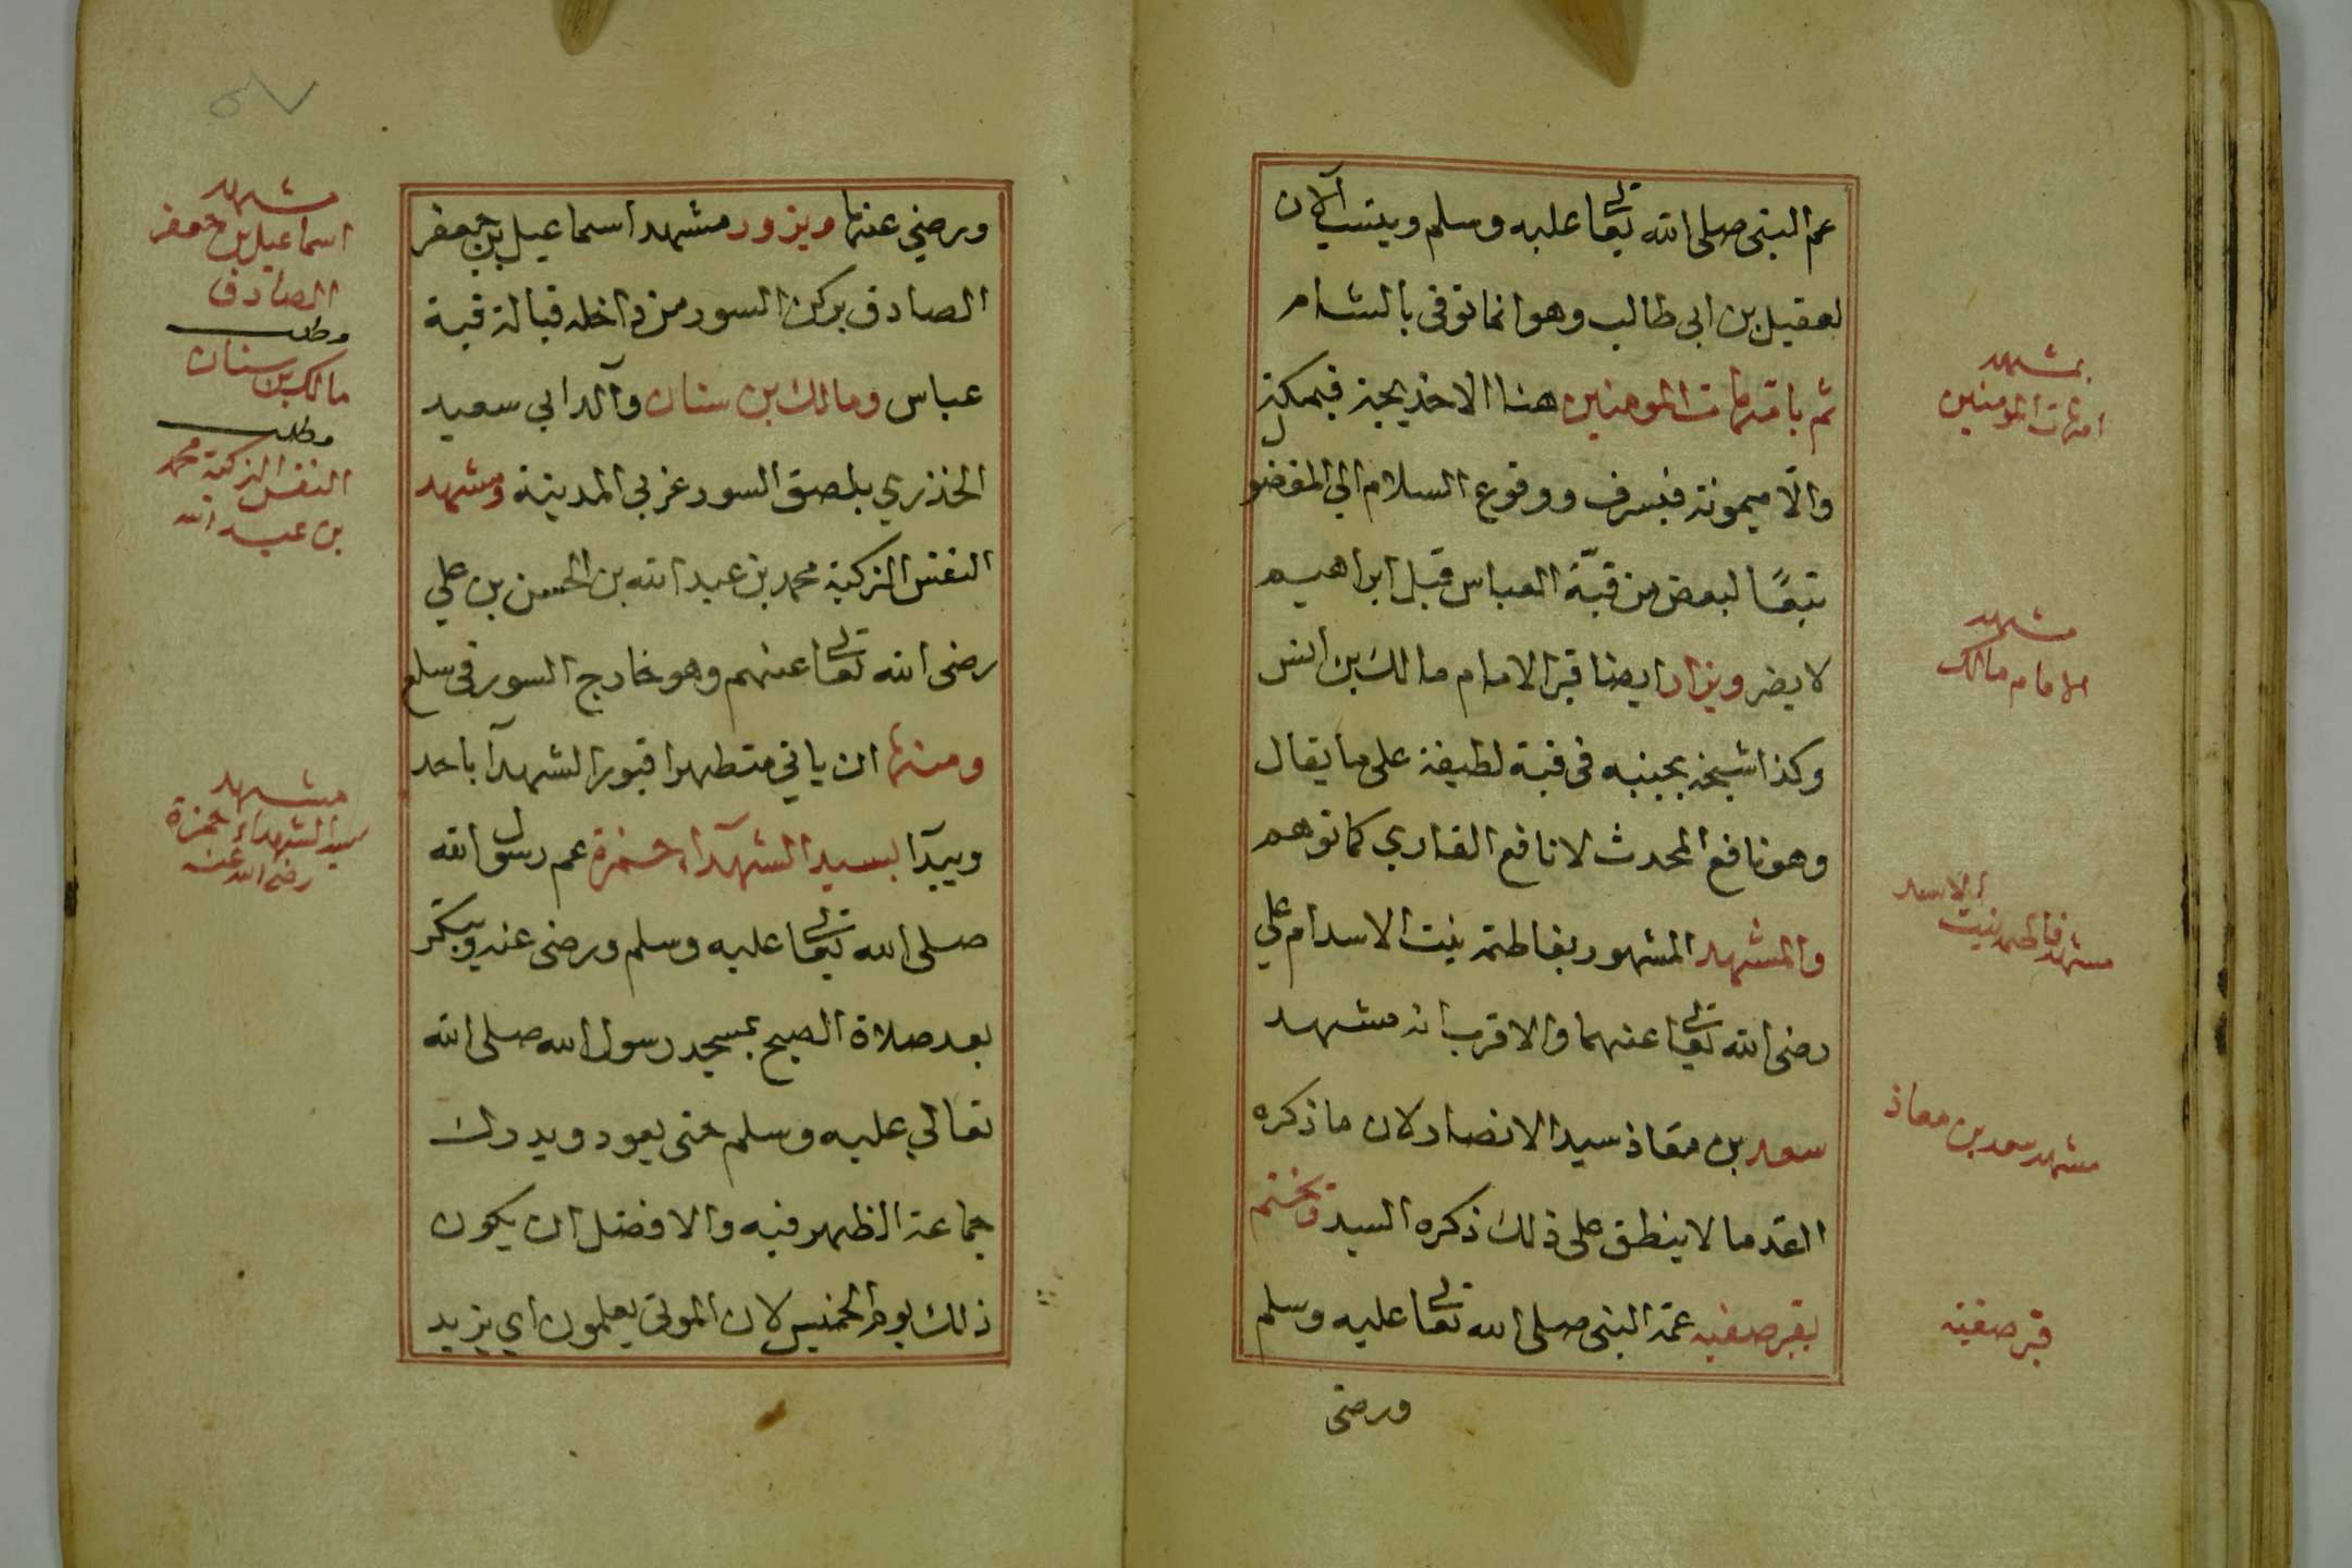 عم النبي صلى الله تعالى عليه وسلم وينسب الآن
لعقيل بن ابي طالب وهو انما توفى بالشام
ثم بامهات المومنين هنا الا خديجة فبمكة
والا ميمونة فبسرف ووقوع السلام الي المفضو
تبعًا لبعض من قبّة العباس قبل ابراهيم
لا يضر ويزار ايضا قبر الامام مالك بن انس
وكذا شيخه بجنبه فى قبة لطيفة على ما يقال
وهو نافع المحدث لا نافع القاري كما توهم
والمشهد المشهور بفاطمة بنت الاسد ام علي
رضى الله تعالى عنهما والاقرب انه مشهد
سعد بن معاذ سيد الانصار لان ما ذكره
القدما لا ينطق على ذلك ذكره السيد ويختم
بقبر صفيه عمة النبى صلى الله تعالى عليه وسلم
ورضى
بمشهد
امهات المومنين
مشهد
الامام مالك
الاسد
مشهد فاطمه بنت
مشهد سعد بن معاذ
قبر صفيه
ورضي عنها ويزور مشهد اسماعيل بن جعفر
الصادق بركن السور من داخله قبالة قبة
عباس ومالك بن سنان والد ابي سعيد
الخذري بلصق السور غربي المدينة ومشهد
النفس الزكية محمد بن عبد الله بن الحسن بن علي
رضى الله تعالى عنهم وهو خارج السور فى سلع
ومنها ان ياتي متطهرا قبور الشهدآ باحد
ويبدآ بسيد الشهدآء حمزة عم رسول الله
صلى الله تعالى عليه وسلم ورضى عنه ويبكر
بعد صلاة الصبح بمسجد رسول الله صلى الله
تعالي عليه وسلم حتى يعود ويدرك
جماعة الظهر فيه والافضل ان يكون
ذلك يوم الخميس لان الموتى يعلمون اي يزيد
٥٧
مشهد
اسماعيل بن جعفر
الصادق
مطلب
مالك بن سنان
مطلب
النفس الزكية محمد
بن عبد الله
مشهد
سيد الشهداء حمزة
رضى الله عنه